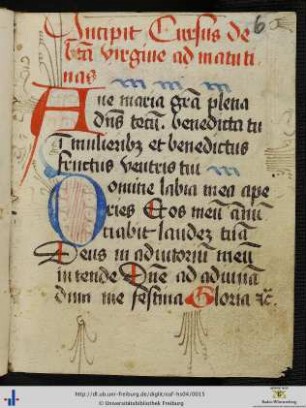 6
Incipit Cursus de
btā virgine ad matuti
nas
Aue maria grā plena
dn̄s tecū. benedicta tu
I mulieribꝫ et benedictus
fructus ventris tui
Domine labia mea ape
ries Et os meū ānū
ciabit laudeꝫ tuā
Deus in adiutoriū meū
intende Dn̄e ad adiuuā
dum me festina Gloria ꝛc̄.
http://dl.ub.uni-freiburg.de/diglit/
© Universitätsbibliothek Freiburg
Baden-Württemberg